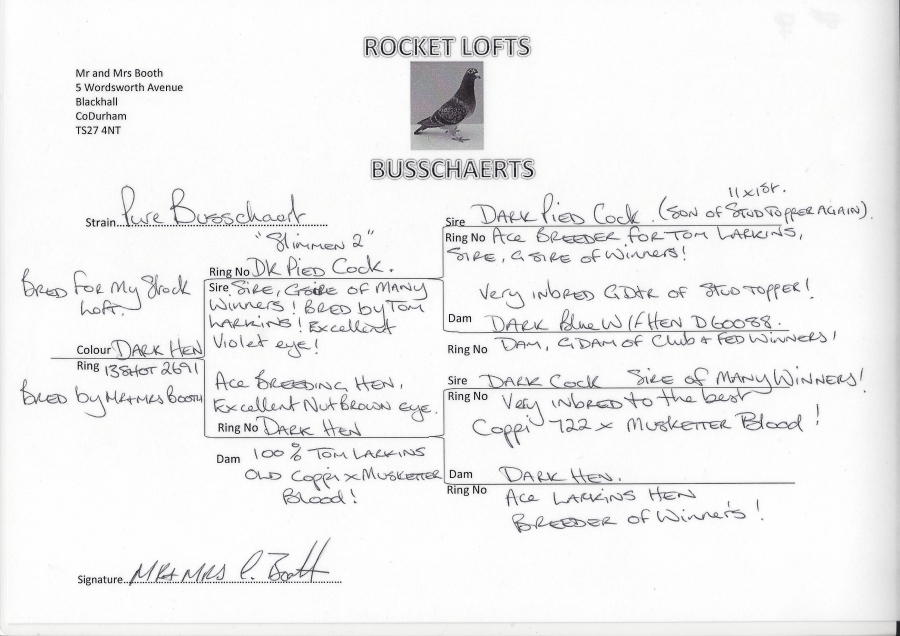 ROCKET LOFTS
Mr and Mrs Booth
5 Wordsworth Avenue
Blackhall
CoDurham
TS27 4NT
BUSSCHAERTS
Strain Pure Busschaert
"Slimmen 2"
Ring No DK PIED COCK.
Sire SIRE, G SIRE OF MANY
WINNERS! BRED BY TOM
LARKINS! Excellent
Violet eye!
BRED FOR My Stock
Loft.
Colour DARK HEN
Ring 13SHOT 2691
BRED by MR+MRS BOOTH
ACE BREEDING HEN,
EXCELLENT NUTBROWN EYE.
Ring No DARK HEN
Dam 100% TOM LARKINS
OLD COPPI x MUSKETTER
Blood!
11 x 1st.
Sire DARK PIED COCK. (SON OF STUD TOPPER AGAIN).
Ring No ACE BREEDER FOR TOM LARKINS,
SIRE, G SIRE OF WINNERS!
VERY INBRED G DTR OF STUD TOPPER!
Dam DARK Blue W/F HEN D60088.
Ring No DAM, G DAM OF Club & FED WINNERS!
Sire DARK COCK SIRE OF MANY WINNERS!
Ring No VERY INBRED to the best
COPPI 722 x MUSKETTER Blood!
Dam DARK HEN.
Ring No ACE LARKINS HEN
BREEDER OF WINNERS!
Signature MR+MRS C. Booth